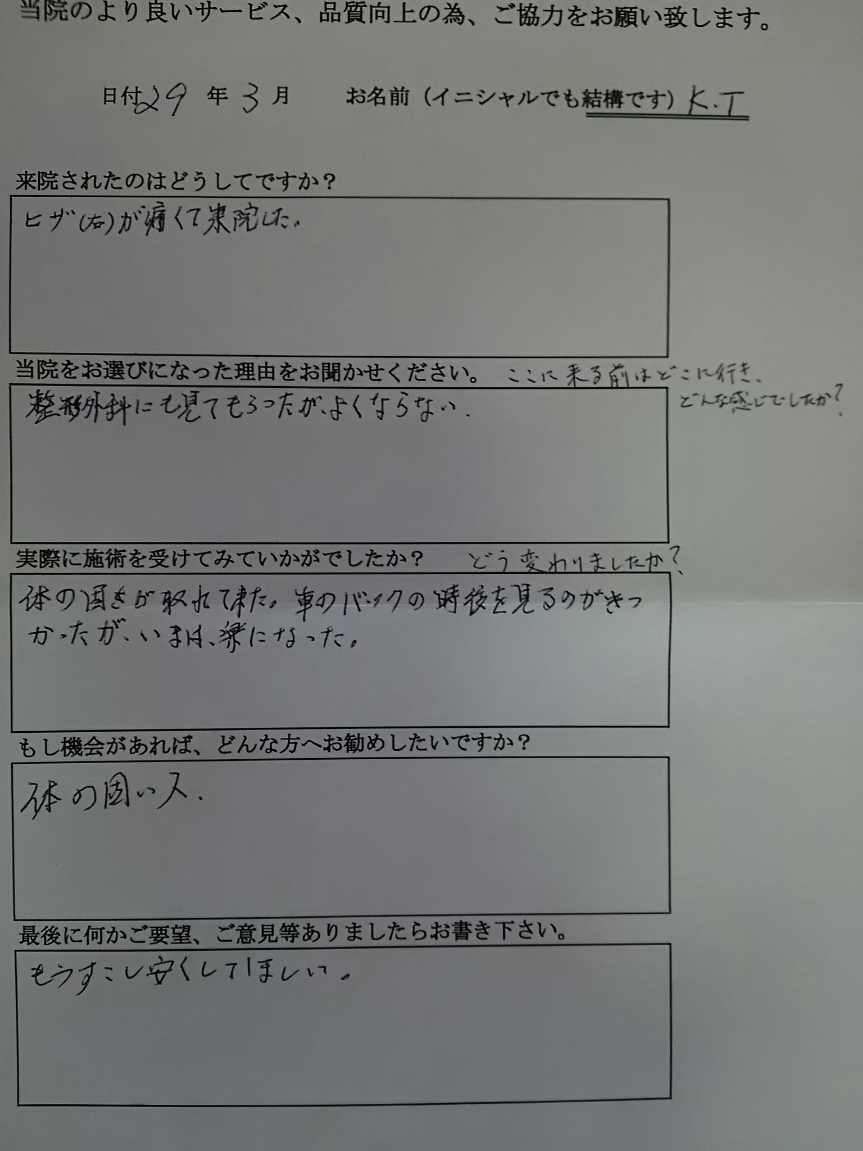 当院のより良いサービス、品質向上の為、ご協力をお願い致します。
日付29年3月 お名前（イニシャルでも結構です）K.T
来院されたのはどうしてですか？
ヒザ(右)が痛くて来院した。
当院をお選びになった理由をお聞かせください。 ここに来る前はどこに行き、
どんな感じでしたか？
整形外科にも見てもらったが、よくならない.
実際に施術を受けてみていかがでしたか？ どう変わりましたか？
体の固さが取れて来た。車のバックの時後を見るのがきつ
かったが、いまは、楽になった。
もし機会があれば、どんな方へお勧めしたいですか？
体の固い人.
最後に何かご要望、ご意見等ありましたらお書き下さい。
もうすこし安くしてほしい。